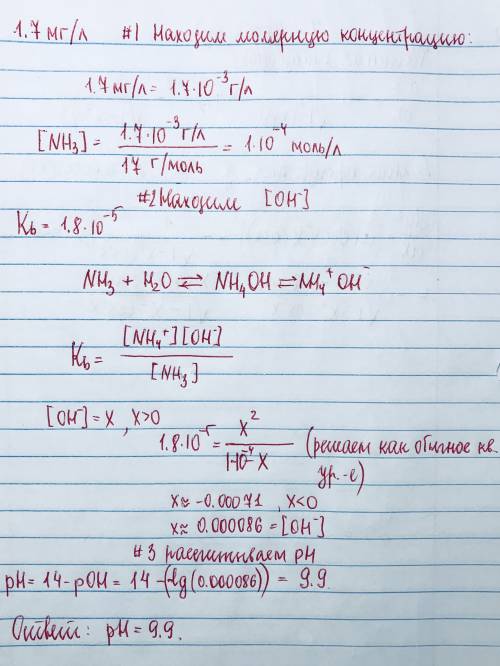 1.7 мг/л #1 Находим молярную концентрацию:
1.7 мг/л = 1.7·10⁻³ г/л
[NH₃] = 1.7·10⁻³ г/л / 17 г/моль = 1·10⁻⁴ моль/л
#2 Находим [OH⁻]
Kb = 1.8·10⁻⁵
NH₃ + H₂O ⇌ NH₄OH ⇌ NH₄⁺ OH⁻
Kb = [NH₄⁺][OH⁻] / [NH₃]
[OH⁻] = x , x>0
1.8·10⁻⁵ = x² / 1·10⁻⁴ x (решаем как обычное кв. ур.-е)
x ≈ -0.00071 , x<0
x ≈ 0.000086 = [OH⁻]
#3 рассчитываем pH
pH = 14 - pOH = 14 - (-lg(0.000086)) = 9.9
Ответ: pH = 9.9.